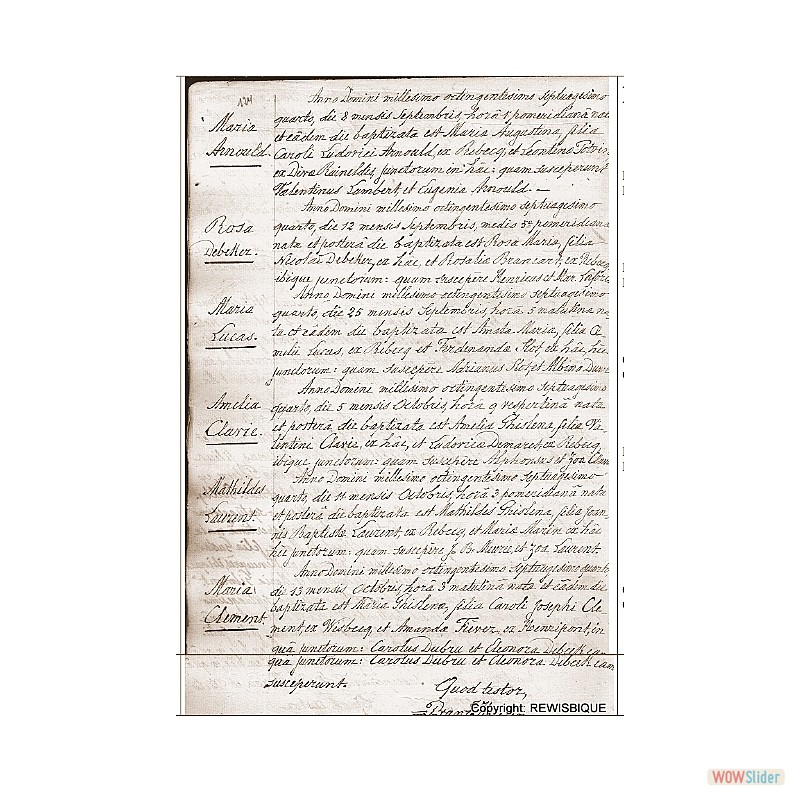 124
Anno Domini millesimo octingentesimo septuagesimo
Maria
Arnould.
quarto, die 8 mensis Septembris, horâ 1 pomeridianâ
et eâdem die baptizata est Maria Augustina, filia
Caroli Ludovici Arnould, ex Rebecq, et Leontina
ex Divæ Raineldes, junctorum in hâc: quam susceperunt
Valentinus Lambert, et Eugenia Arnould.—
Anno Domini millesimo octingentesimo septuagesimo
Rosa
DeBeKer.
quarto, die 12 mensis Septembris, mediâ 5ª pomeridianâ
nata et posterâ die baptizata est Rosa Maria, filia
Nicolaï DeBeKer, ex hâc, et Rosalia Brancart, ex
ibique junctorum: quam suscepêre Henricus et Mar.
Anno Domini millesimo octingentesimo septuagesimo
Maria
Lucas.
quarto, die 25 mensis Septembris, horâ 5 matutina na-
ta et eâdem die baptizata est Amata Maria, filia
milii Lucas, ex Rebecq et Ferdenandæ Slot, ex hâc, hic
junctorum: quam suscepêre Adrianus Slot, et Albina
Anno Domini millesimo octingentesimo septuagesimo
Amelia
Clavie.
quarto, die 5 mensis Octobris, horâ 9 vespertinâ nata
et posterâ die baptizata est Amelia Ghislena, filia Va-
lentini Clavie, ex hâc, et Ludovica Demaret, ex Rebecq,
ibique junctorum: quam suscepêre Alphonsus et Zoa
Anno Domini millesimo octingentesimo septuagesimo
Mathildes
Laurent.
quarto, die 11 mensis Octobris, horâ 3 pomeridianâ nata
et posterâ die baptizata est Mathildes Ghislena, filia Joan-
nis Baptistæ Laurent, ex Rebecq, et Mariæ Marin ex hâc
hic junctorum: quam suscepêre J. B. et Zoa Laurent.
Anno Domini millesimo octingentesimo septuagesimo quarto
Maria
Clement.
die 13 mensis Octobris, horâ 3 matutina nata et eâdem die
baptizata est Maria Ghislena, filia Caroli Josephi Cle-
ment, ex Wisbecq, et Amandæ Fiever, ex Henripont, in
quâ junctorum: Carolus Dubru et Eleonora Debeck eam
quâ junctorum: Carolus Dubru et Eleonora Debeck eam
susceperunt.
Quod testor,
Copyright: REWISBIQUE
WOWSlider